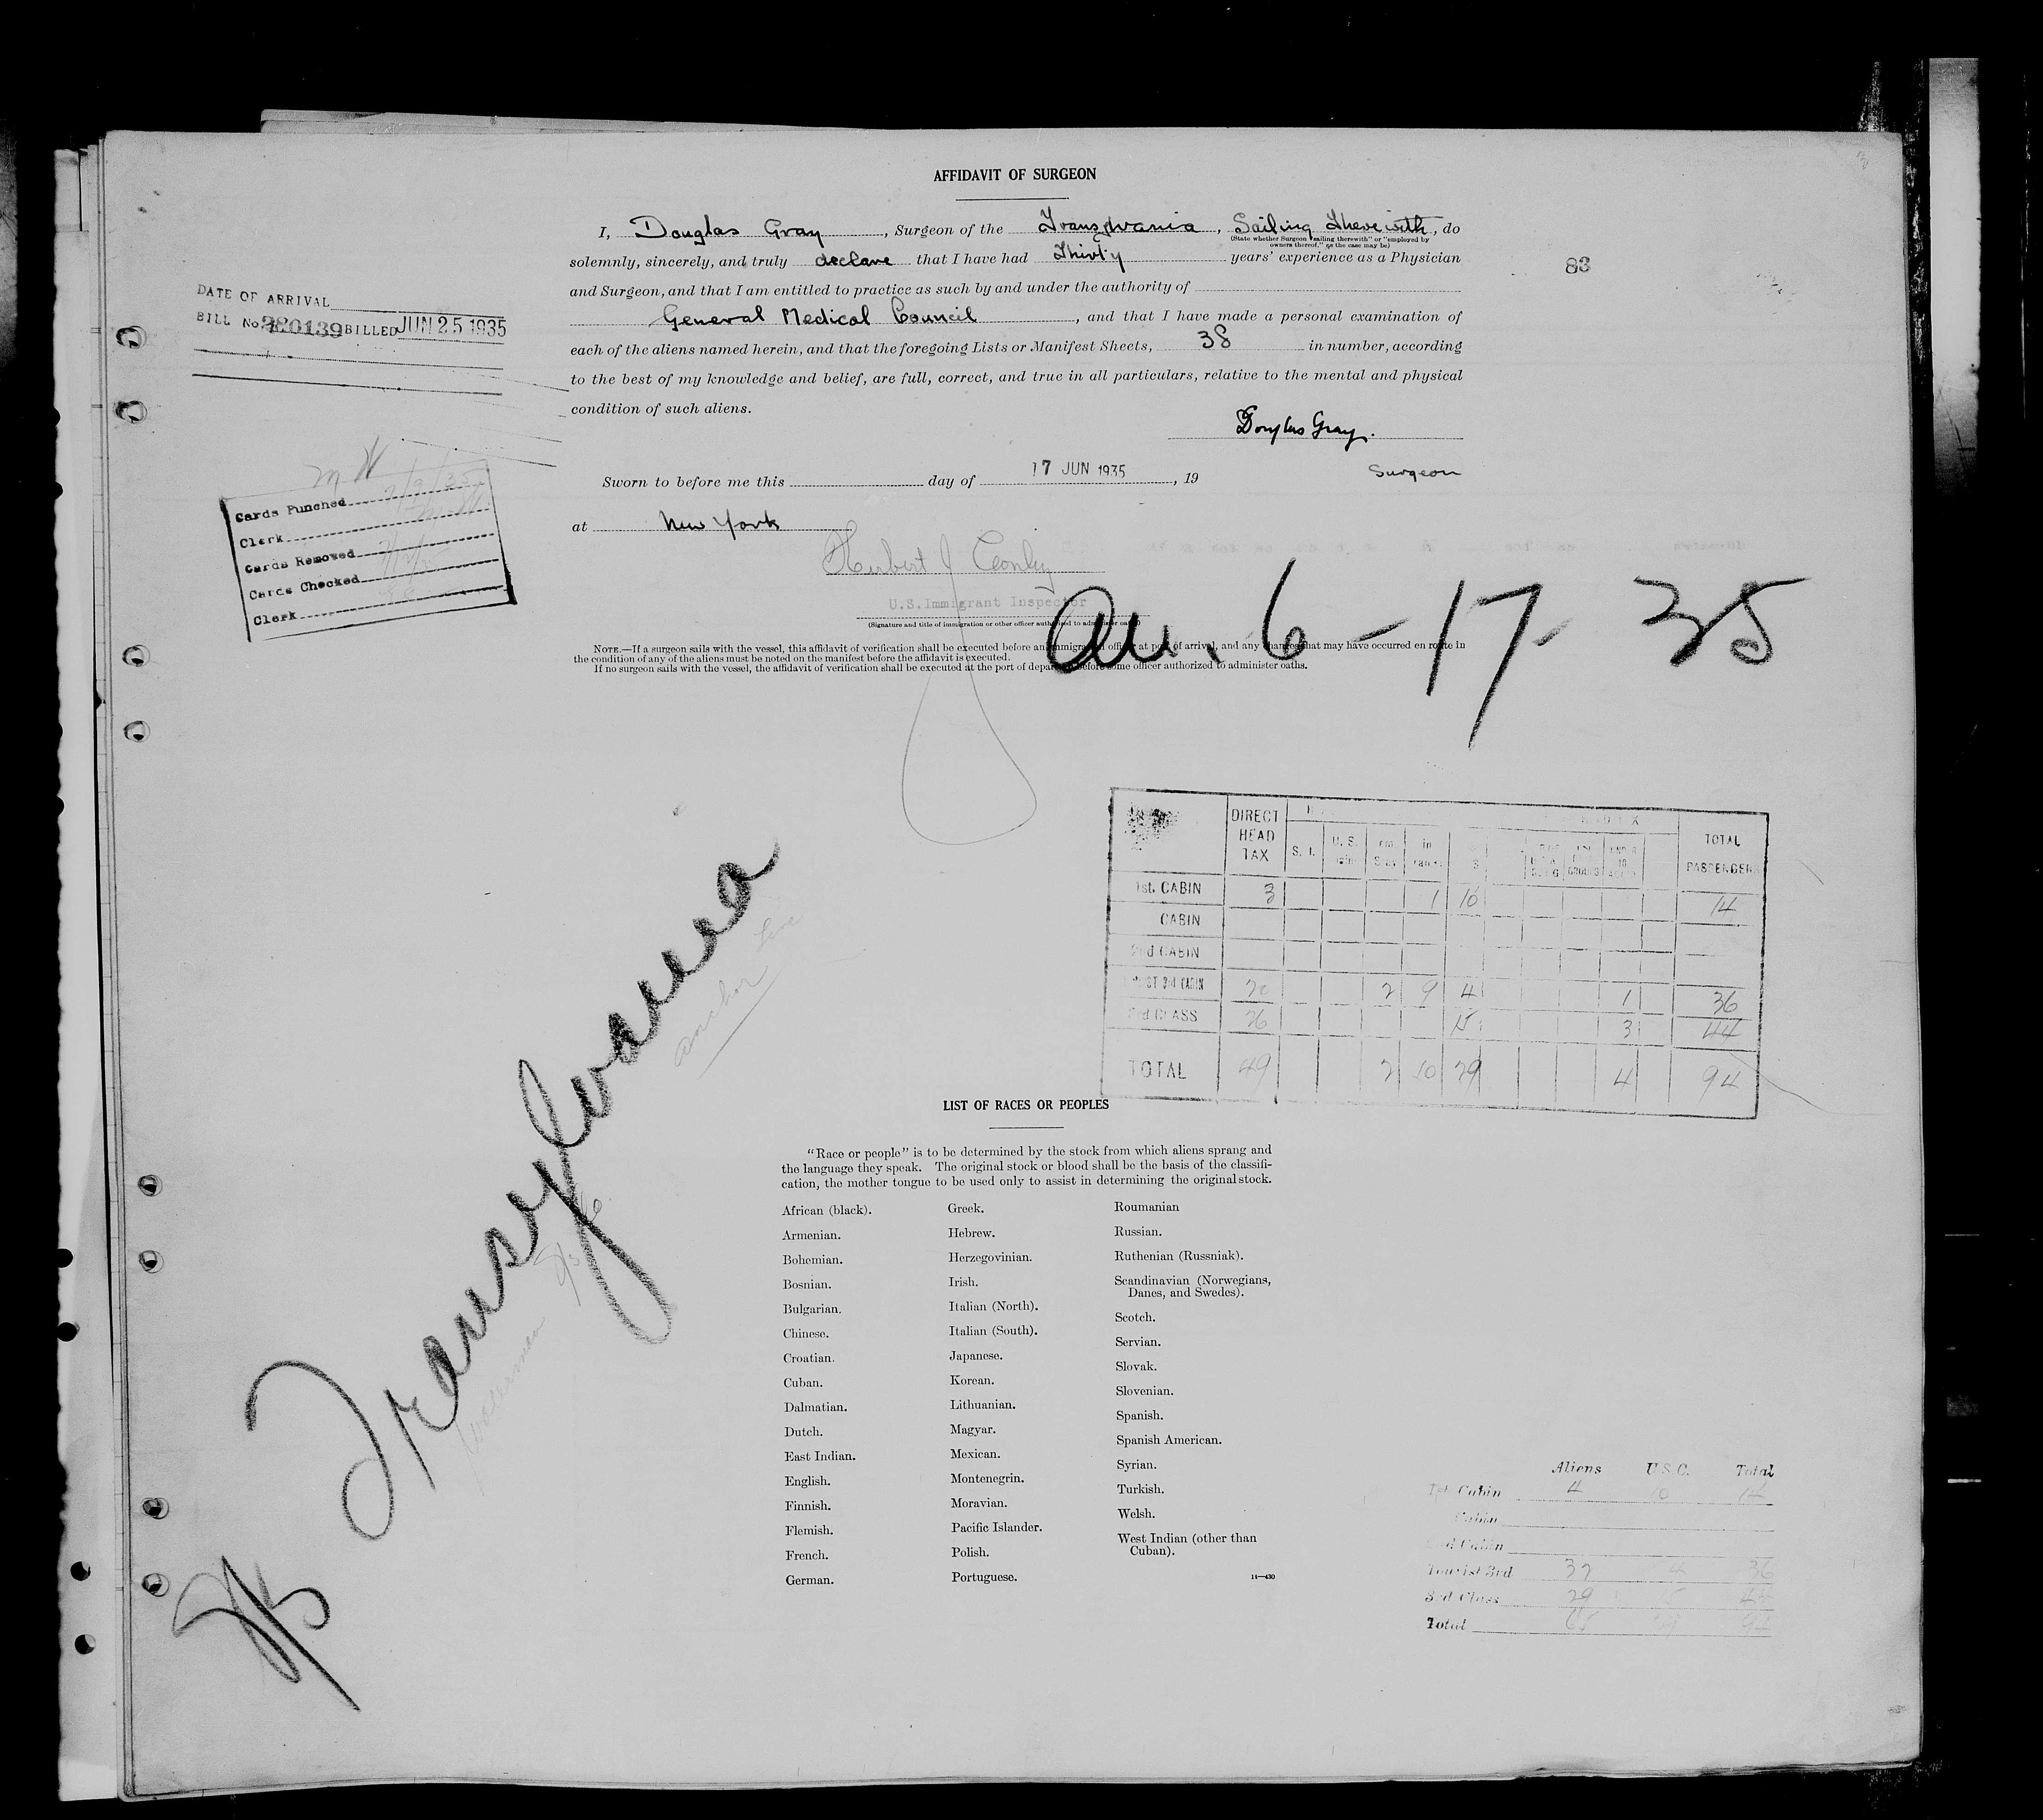 AFFIDAVIT OF SURGEON
I, Douglas Gray, Surgeon of the Transylvania, Sailing Therewith, do
(State whether Surgeon "sailing therewith" or "employed by
owners thereof," as the case may be)
solemnly, sincerely, and truly declare that I have had Thirty years' experience as a Physician
83
and Surgeon, and that I am entitled to practice as such by and under the authority of
General Medical Council, and that I have made a personal examination of
each of the aliens named herein, and that the foregoing Lists or Manifest Sheets, 38 in number, according
to the best of my knowledge and belief, are full, correct, and true in all particulars, relative to the mental and physical
condition of such aliens.
Douglas Gray.
Surgeon
Sworn to before me this day of 17 JUN 1935, 19
at New York
Herbert J Conly
U.S. Immigrant Inspector
(Signature and title of immigration or other officer authorized to administer oaths)
NOTE.—If a surgeon sails with the vessel, this affidavit of verification shall be executed before an immigration officer at port of arrival, and any changes that may have occurred en route in
the condition of any of the aliens must be noted on the manifest before the affidavit is executed.
If no surgeon sails with the vessel, the affidavit of verification shall be executed at the port of departure before some officer authorized to administer oaths.
DATE OF ARRIVAL
BILL No. BILLED JUN 25 1935
Cards Punched
Clerk
Cards Removed
Cards Checked
Clerk
6-17-35
DIRECT HEAD TAX S. I. U. S. in TOTAL PASSENGER
1st. CABIN 3 1 10 14
CABIN
2nd CABIN
3rd CABIN 20 2 9 4 1 36
3rd CLASS 26 15 3 44
TOTAL 49 2 10 29 4 94
Transylvania
Anchor Line
S/S
LIST OF RACES OR PEOPLES
"Race or people" is to be determined by the stock from which aliens sprang and
the language they speak. The original stock or blood shall be the basis of the classifi-
cation, the mother tongue to be used only to assist in determining the original stock.
African (black).
Armenian.
Bohemian.
Bosnian.
Bulgarian.
Chinese.
Croatian.
Cuban.
Dalmatian.
Dutch.
East Indian.
English.
Finnish.
Flemish.
French.
German.
Greek.
Hebrew.
Herzegovinian.
Irish.
Italian (North).
Italian (South).
Japanese.
Korean.
Lithuanian.
Magyar.
Mexican.
Montenegrin.
Moravian.
Pacific Islander.
Polish.
Portuguese.
Roumanian
Russian.
Ruthenian (Russniak).
Scandinavian (Norwegians,
Danes, and Swedes).
Scotch.
Servian.
Slovak.
Slovenian.
Spanish.
Spanish American.
Syrian.
Turkish.
Welsh.
West Indian (other than
Cuban).
14—430
Aliens U.S.C. Total
1st Cabin 4 10 14
Cabin
2nd Cabin
Tourist 3rd 32 4 36
3rd Class 29 15 44
Total 65 29 94